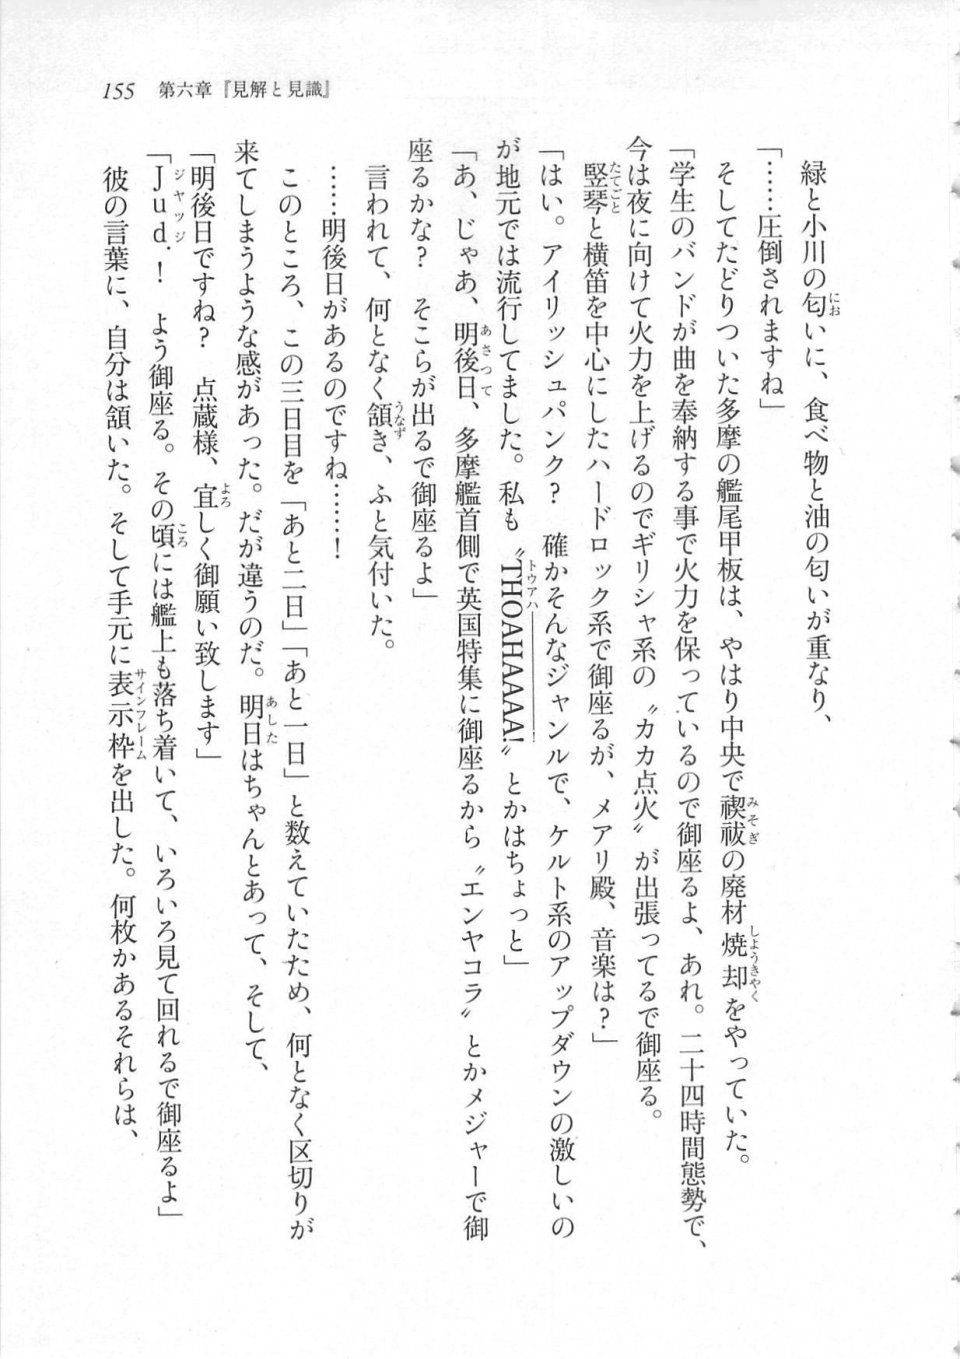 155 第六章『見解と見識』
緑と小川の匂いに、食べ物と油の匂いが重なり、
「……圧倒されますね」
そしてたどりついた多摩の艦尾甲板は、やはり中央で禊祓の廃材焼却をやっていた。
「学生のバンドが曲を奉納する事で火力を保っているので御座るよ、あれ。二十四時間態勢で、
今は夜に向けて火力を上げるのでギリシャ系の〝カカ点火〟が出張ってるで御座る。
竪琴と横笛を中心にしたハードロック系で御座るが、メアリ殿、音楽は？」
「はい。アイリッシュパンク？　確かそんなジャンルで、ケルト系のアップダウンの激しいの
が地元では流行してました。私も〝THOAHAAAA!〟とかはちょっと」
「あ、じゃあ、明後日、多摩艦首側で英国特集に御座るから〝エンヤコラ〟とかメジャーで御
座るかな？　そこらが出るで御座るよ」
言われて、何となく頷き、ふと気付いた。
……明後日があるのですね……！
このところ、この三日目を「あと二日」「あと一日」と数えていたため、何となく区切りが
来てしまうような感があった。だが違うのだ。明日はちゃんとあって、そして、
「明後日ですね？　点蔵様、宜しく御願い致します」
「Jud.！　よう御座る。その頃には艦上も落ち着いて、いろいろ見て回れるで御座るよ」
彼の言葉に、自分は頷いた。そして手元に表示枠を出した。何枚かあるそれらは、